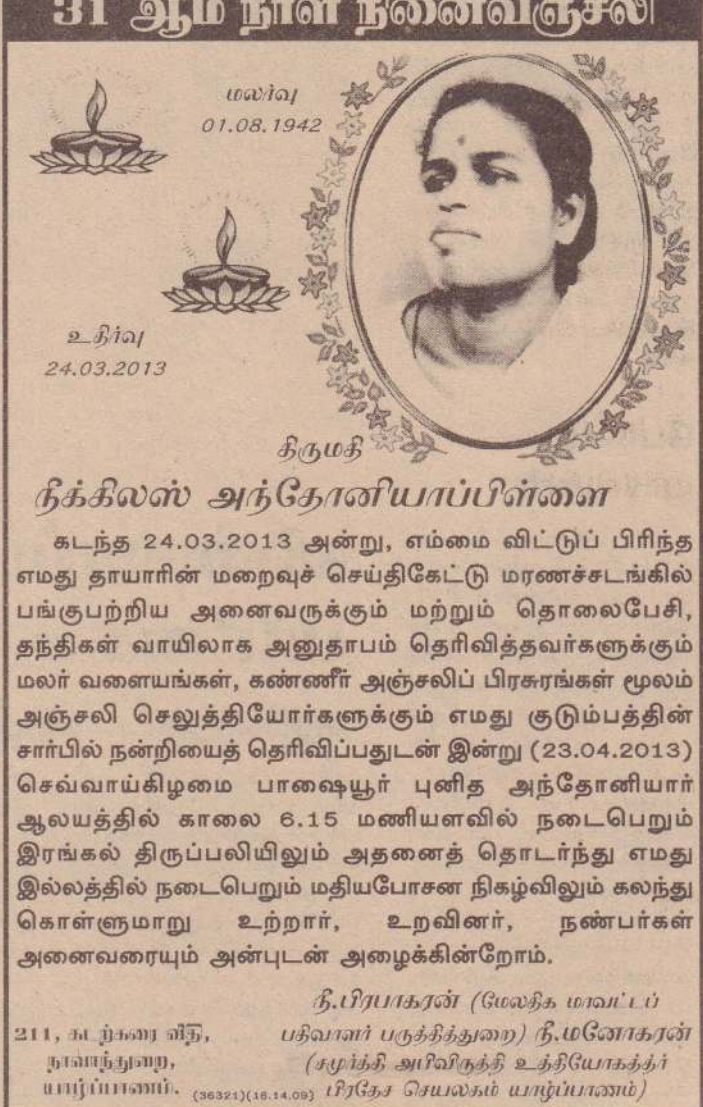 31 ஆம் நாள் நினைவஞ்சலி
மலர்வு
01.08.1942
உதிர்வு
24.03.2013
திருமதி
நீக்கிலஸ் அந்தோனியாப்பிள்ளை
கடந்த 24.03.2013 அன்று, எம்மை விட்டுப் பிரிந்த
எமது தாயாரின் மறைவுச் செய்திகேட்டு மரணச்சடங்கில்
பங்குபற்றிய அனைவருக்கும் மற்றும் தொலைபேசி,
தந்திகள் வாயிலாக அனுதாபம் தெரிவித்தவர்களுக்கும்
மலர் வளையங்கள், கண்ணீர் அஞ்சலிப் பிரசுரங்கள் மூலம்
அஞ்சலி செலுத்தியோர்களுக்கும் எமது குடும்பத்தின்
சார்பில் நன்றியைத் தெரிவிப்பதுடன் இன்று (23.04.2013)
செவ்வாய்கிழமை பாஷையூர் புனித அந்தோனியார்
ஆலயத்தில் காலை 6.15 மணியளவில் நடைபெறும்
இரங்கல் திருப்பலியிலும் அதனைத் தொடர்ந்து எமது
இல்லத்தில் நடைபெறும் மதியபோசன நிகழ்விலும் கலந்து
கொள்ளுமாறு உற்றார், உறவினர், நண்பர்கள்
அனைவரையும் அன்புடன் அழைக்கின்றோம்.
நீ.பிரபாகரன் (மேலதிக மாவட்டப்
பதிவாளர் பருத்தித்துறை) நீ.மனோகரன்
(சமுர்த்தி அபிவிருத்தி உத்தியோகத்தர்
பிரதேச செயலகம் யாழ்ப்பாணம்)
211, கடற்கரை வீதி,
நாவாந்துறை,
யாழ்ப்பாணம்.
(36321)(16.14.09)